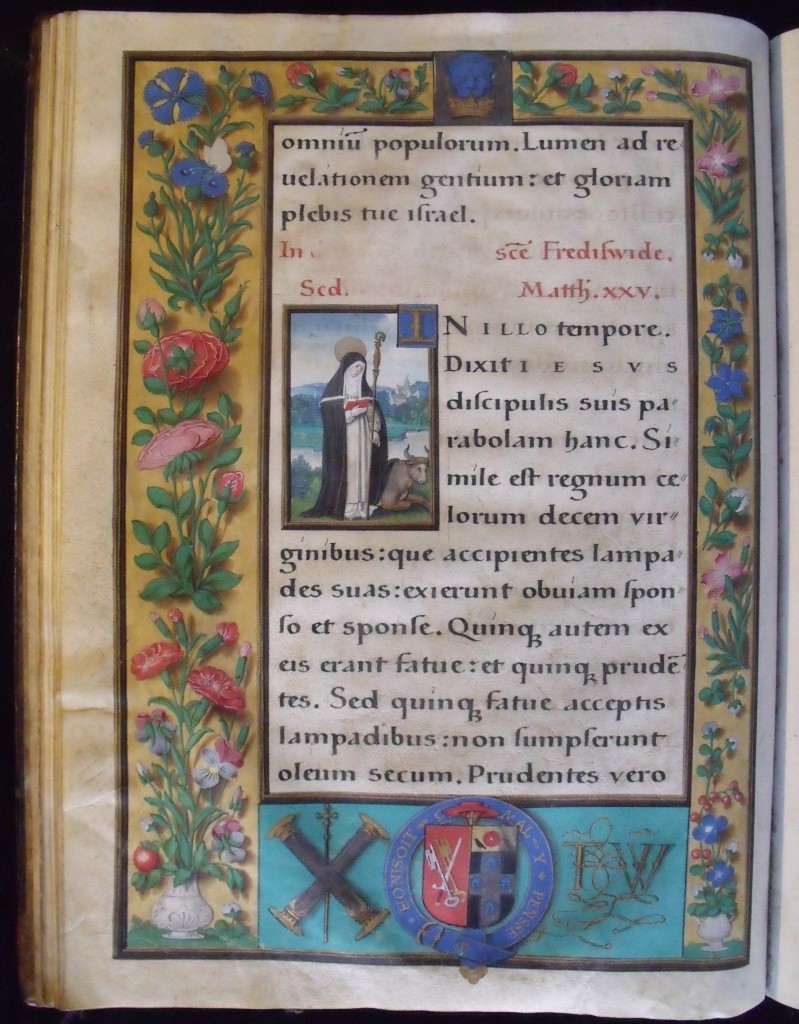 omniū populorum. Lumen ad re
uelationem gentium: et gloriam
plebis tue israel.
In scē̄ Frediswide.
Scd. Matth. xxv.
IN ILLO tempore.
Dixit IESVS
discipulis suis pa〃
rabolam hanc. Si〃
mile est regnum ce〃
lorum decem vir〃
ginibus: que accipientes lampa〃
des suas: exierunt obuiam spon〃
so et sponse. Quinqꝫ autem ex
eis erant fatue: et quinqꝫ prudē
tes. Sed quinqꝫ fatue acceptis
lampadibus: non sumpserunt
oleum secum. Prudentes vero
HONI SOIT MAL Y PENSE